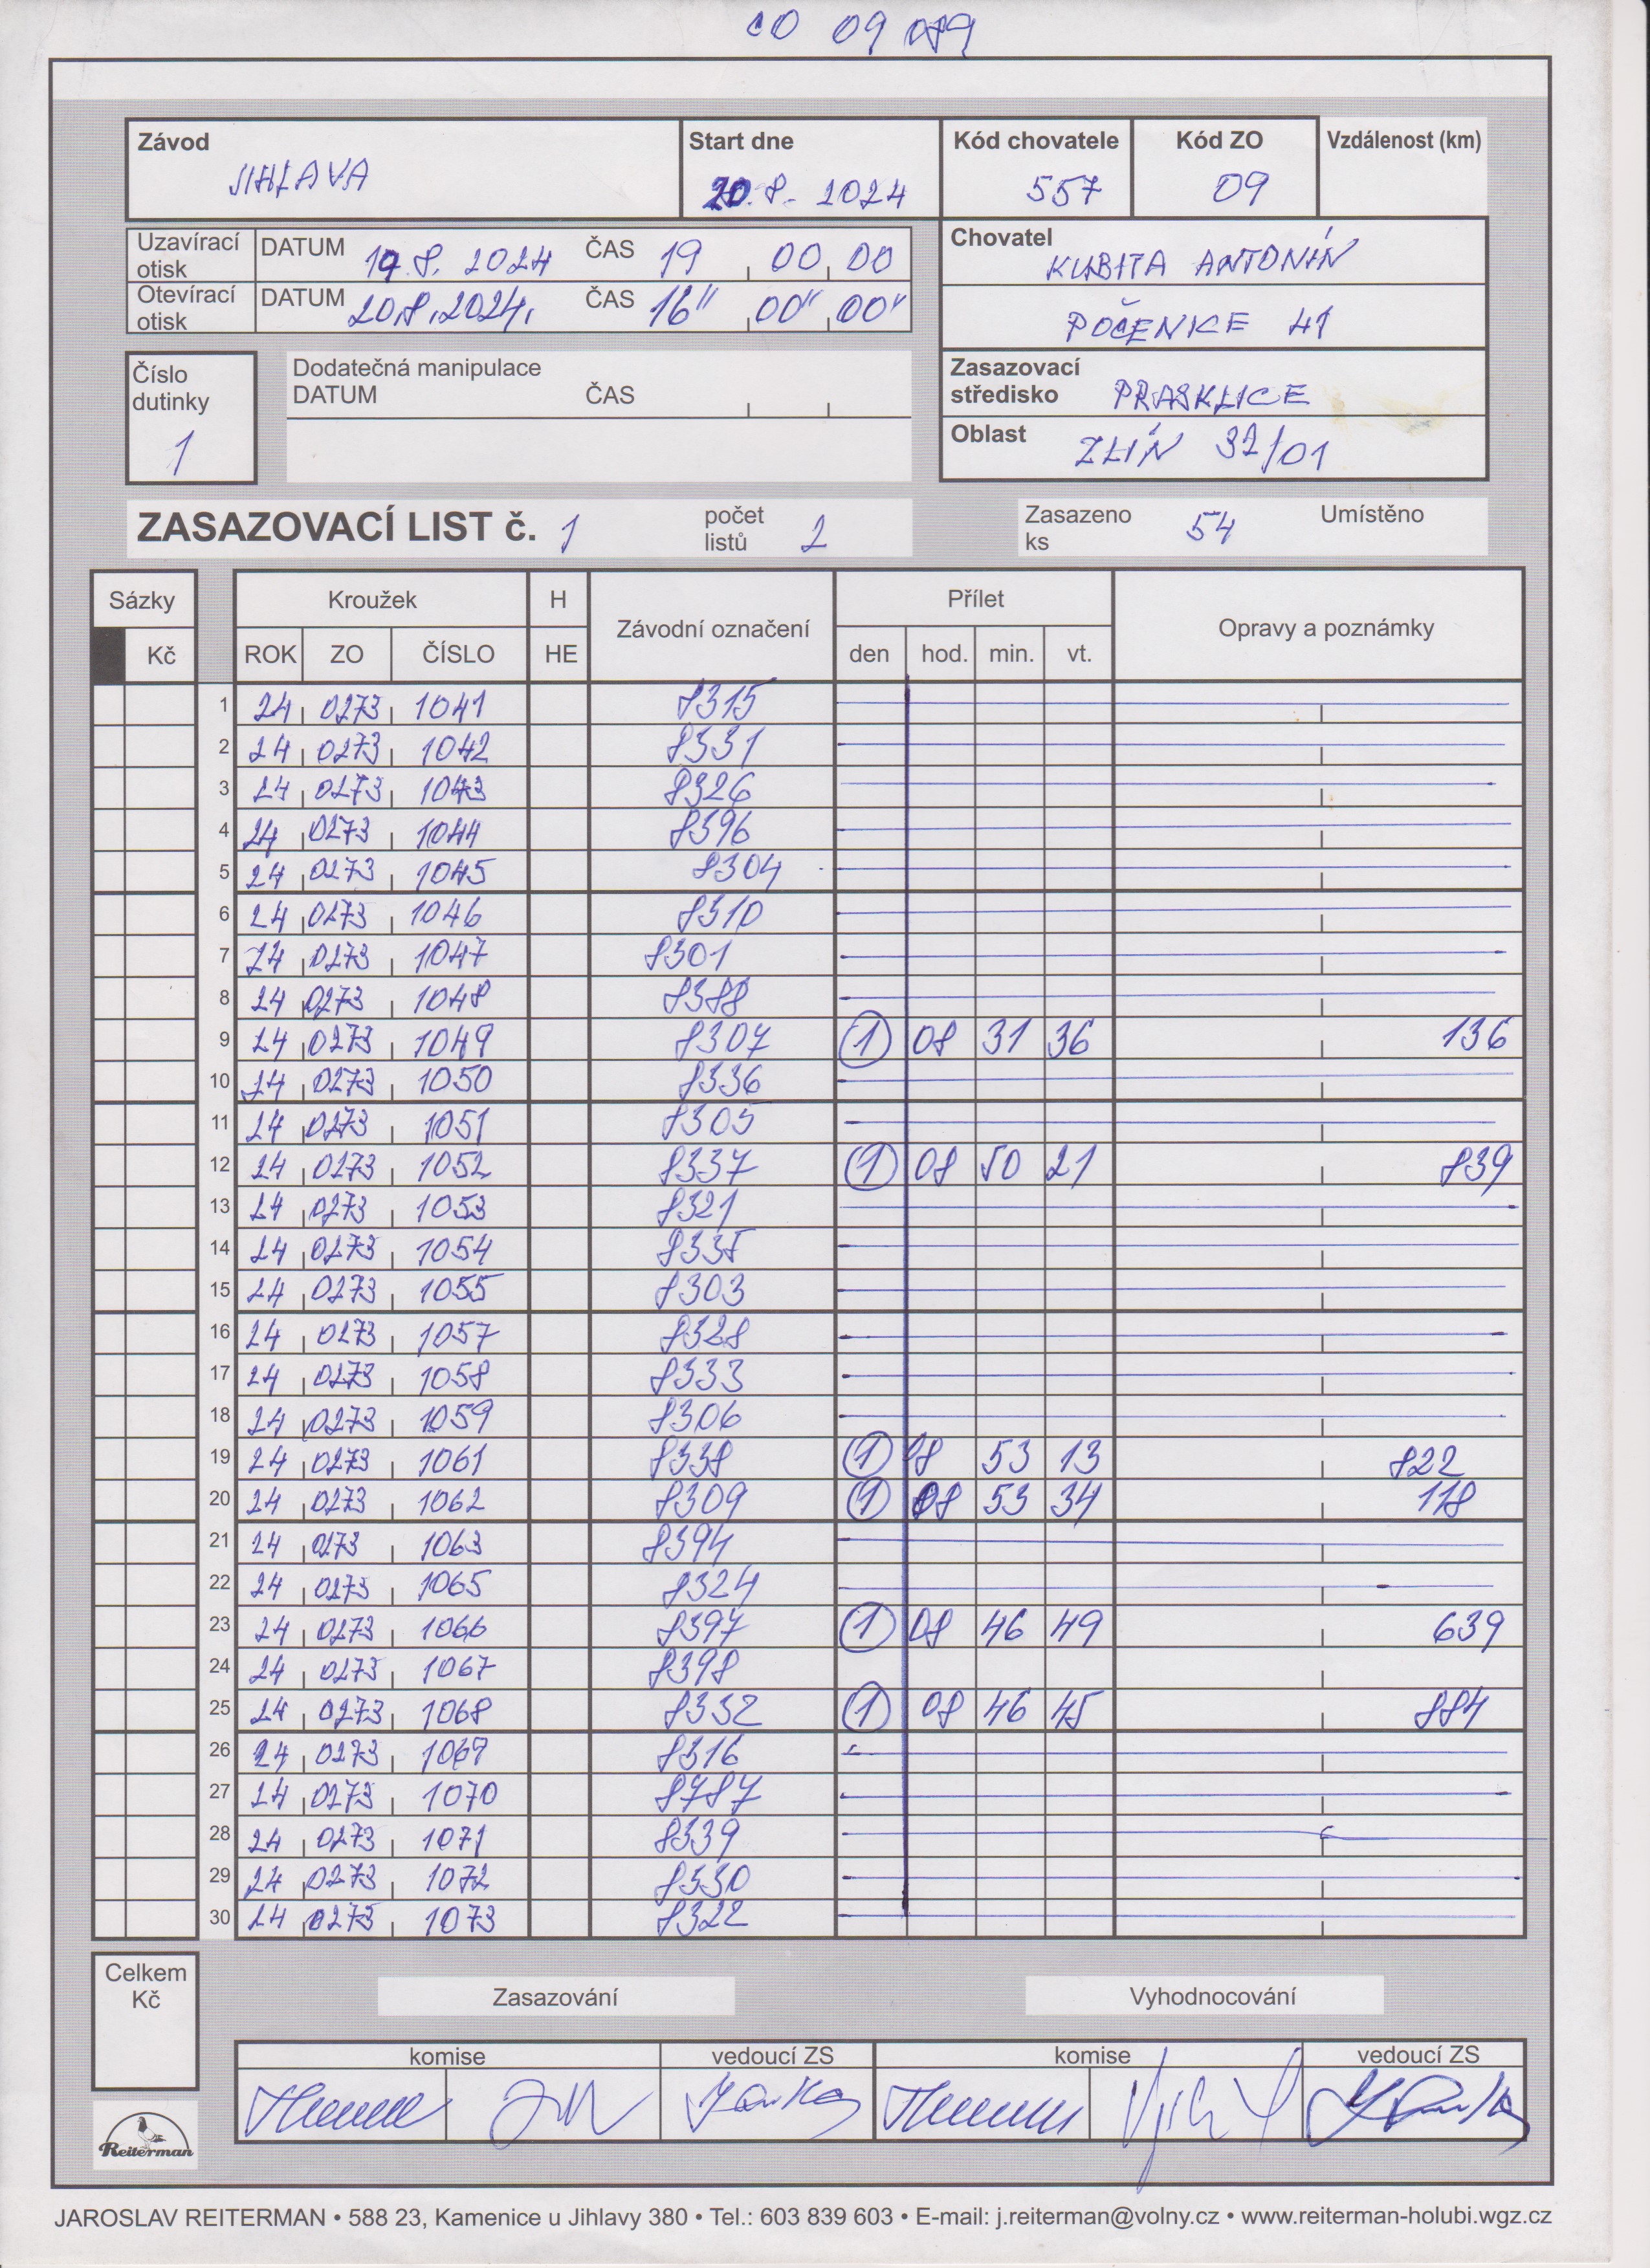 CO 09 089
Závod Start dne Kód chovatele Kód ZO Vzdálenost (km)
JIHLAVA 20.8. 2024 557 09
Uzavírací otisk DATUM 19.8. 2024 ČAS 19 00 00
Otevírací otisk DATUM 20.8.2024. ČAS 16" 00" 00"
Chovatel KUBITA ANTONÍN
POČENICE 41
Číslo dutinky 1
Dodatečná manipulace
DATUM ČAS
Zasazovací středisko PRASKLICE
Oblast ZLÍN 32/01
ZASAZOVACÍ LIST č. 1 počet listů 2 Zasazeno ks 54 Umístěno
Sázky Kroužek H Závodní označení Přílet Opravy a poznámky
Kč ROK ZO ČÍSLO HE den hod. min. vt.
1 24 0273 1041 8315
2 24 0273 1042 8331
3 24 0273 1043 8326
4 24 0273 1044 8396
5 24 0273 1045 8304
6 24 0273 1046 8310
7 24 0273 1047 8301
8 24 0273 1048 8388
9 24 0273 1049 8307 1 08 31 36 136
10 24 0273 1050 8336
11 24 0273 1051 8305
12 24 0273 1052 8337 1 08 50 21 839
13 24 0273 1053 8321
14 24 0273 1054 8335
15 24 0273 1055 8303
16 24 0273 1057 8328
17 24 0273 1058 8333
18 24 0273 1059 8306
19 24 0273 1061 8338 1 08 53 13 822
20 24 0273 1062 8309 1 08 53 34 118
21 24 0273 1063 8394
22 24 0273 1065 8324
23 24 0273 1066 8397 1 08 46 49 639
24 24 0273 1067 8398
25 24 0273 1068 8332 1 08 46 45 884
26 24 0273 1069 8316
27 24 0273 1070 8787
28 24 0273 1071 8339
29 24 0273 1072 8330
30 24 0273 1073 8322
Celkem Kč
Zasazování Vyhodnocování
komise vedoucí ZS komise vedoucí ZS
Reiterman
JAROSLAV REITERMAN • 588 23, Kamenice u Jihlavy 380 • Tel.: 603 839 603 • E-mail: j.reiterman@volny.cz • www.reiterman-holubi.wgz.cz